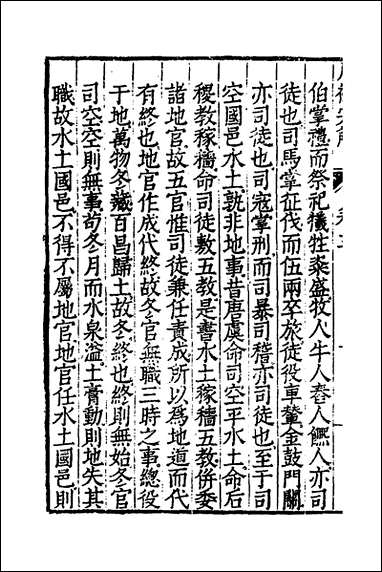 伯掌禮而祭祀犧牲粢盛牧人牛人舂人饎人亦司
徒也司馬掌征伐而伍兩卒旅徒役車輦金鼓門關
亦司徒也司寇掌刑而司暴司稽亦司徒也至于司
空國邑水土孰非地事昔唐虞命司空平水土命后
稷教稼穡命司徒敷五教是書水土稼穡五教併委
諸地官故五官惟司徒兼任責成所以爲地道而代
有終也地官作成代終故冬官無職三時之事總役
于地萬物冬藏百昌歸土故冬終也終則無始冬官
司空空則無事茍冬月而水泉溢土膏動則地失其
職故水土國邑不得不屬地官地官任水土國邑則